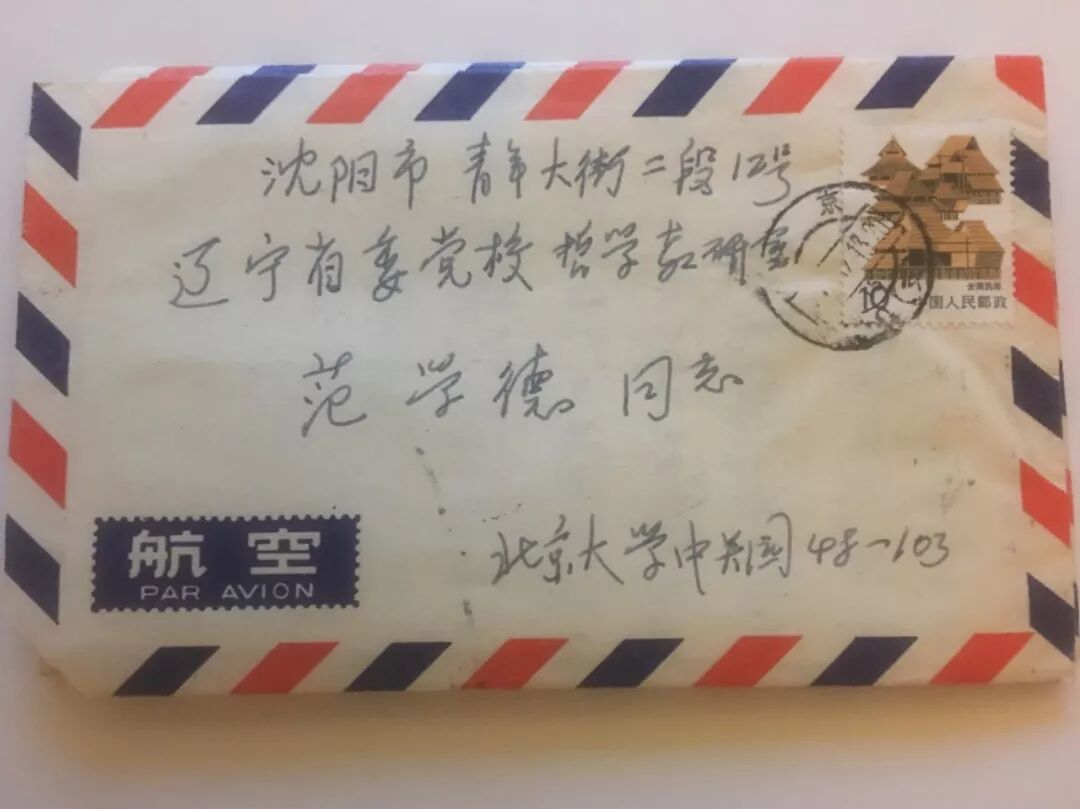 沈阳市 青年大街二段12号
辽宁省委党校 哲学教研室
范学德 同志
北京大学中关园48-103
航空
PAR AVION
京
云南民居
10
中国人民邮政